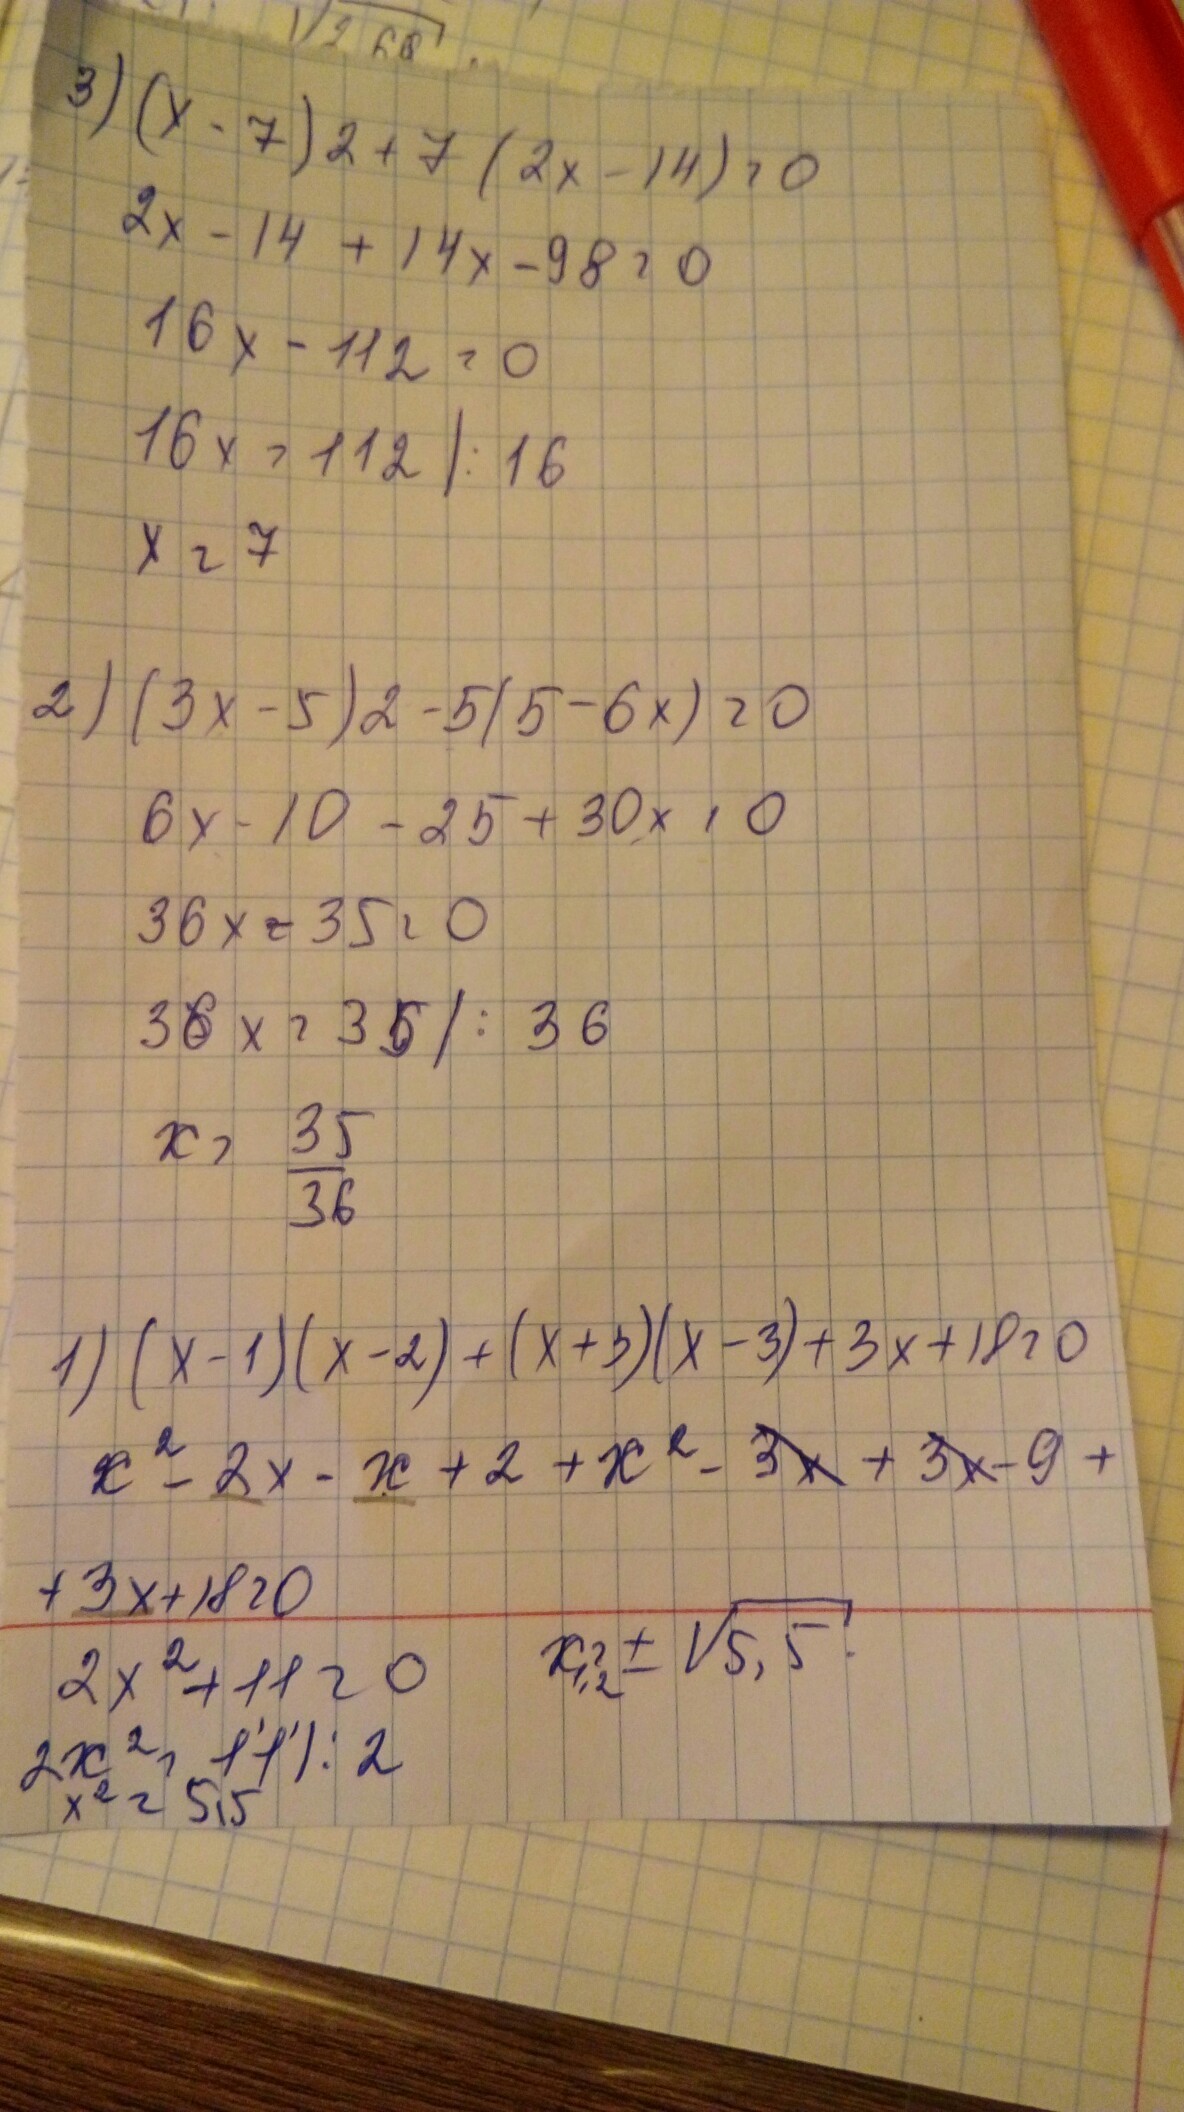 3) (x - 7)2 + 7 (2x - 14) = 0
2x - 14 + 14x - 98 = 0
16x - 112 = 0
16x = 112 | : 16
x = 7
2) (3x - 5)2 - 5(5 - 6x) = 0
6x - 10 - 25 + 30x = 0
36x - 35 = 0
36x = 35 | : 36
x = 35/36
1) (x - 1)(x - 2) + (x + 3)(x - 3) + 3x + 18 = 0
x² - 2x - x + 2 + x² - 3x + 3x - 9 +
+ 3x + 18 = 0
2x² + 11 = 0
2x² = 11 | : 2
x² = 5,5
x₁,₂ = ± √5,5